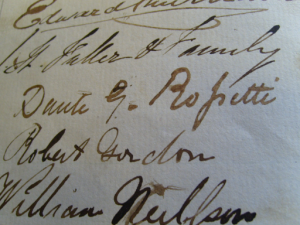 Edward
H. Fuller & Family
Dante G. Rossetti
Robert Gordon
William Neilson